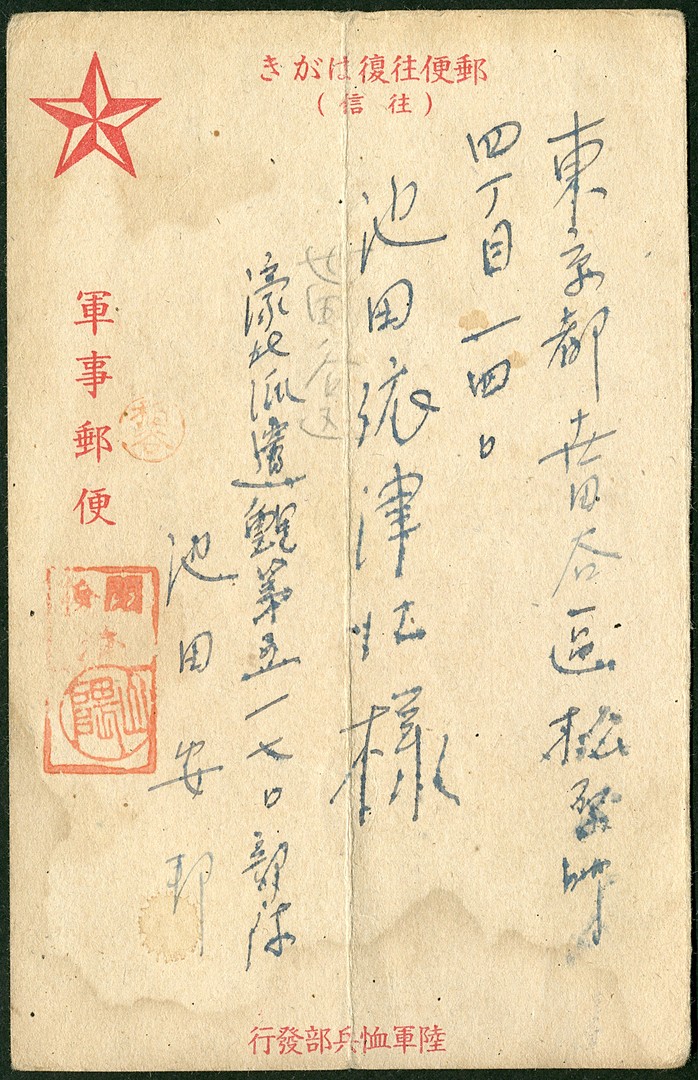 郵便往復はがき
(往信)
東京都世田谷區松
四丁目一四〇
池田 津 様
世田谷区
濠北派遣 第五一七〇部隊
池田安邦
軍事郵便
陸軍恤兵部發行